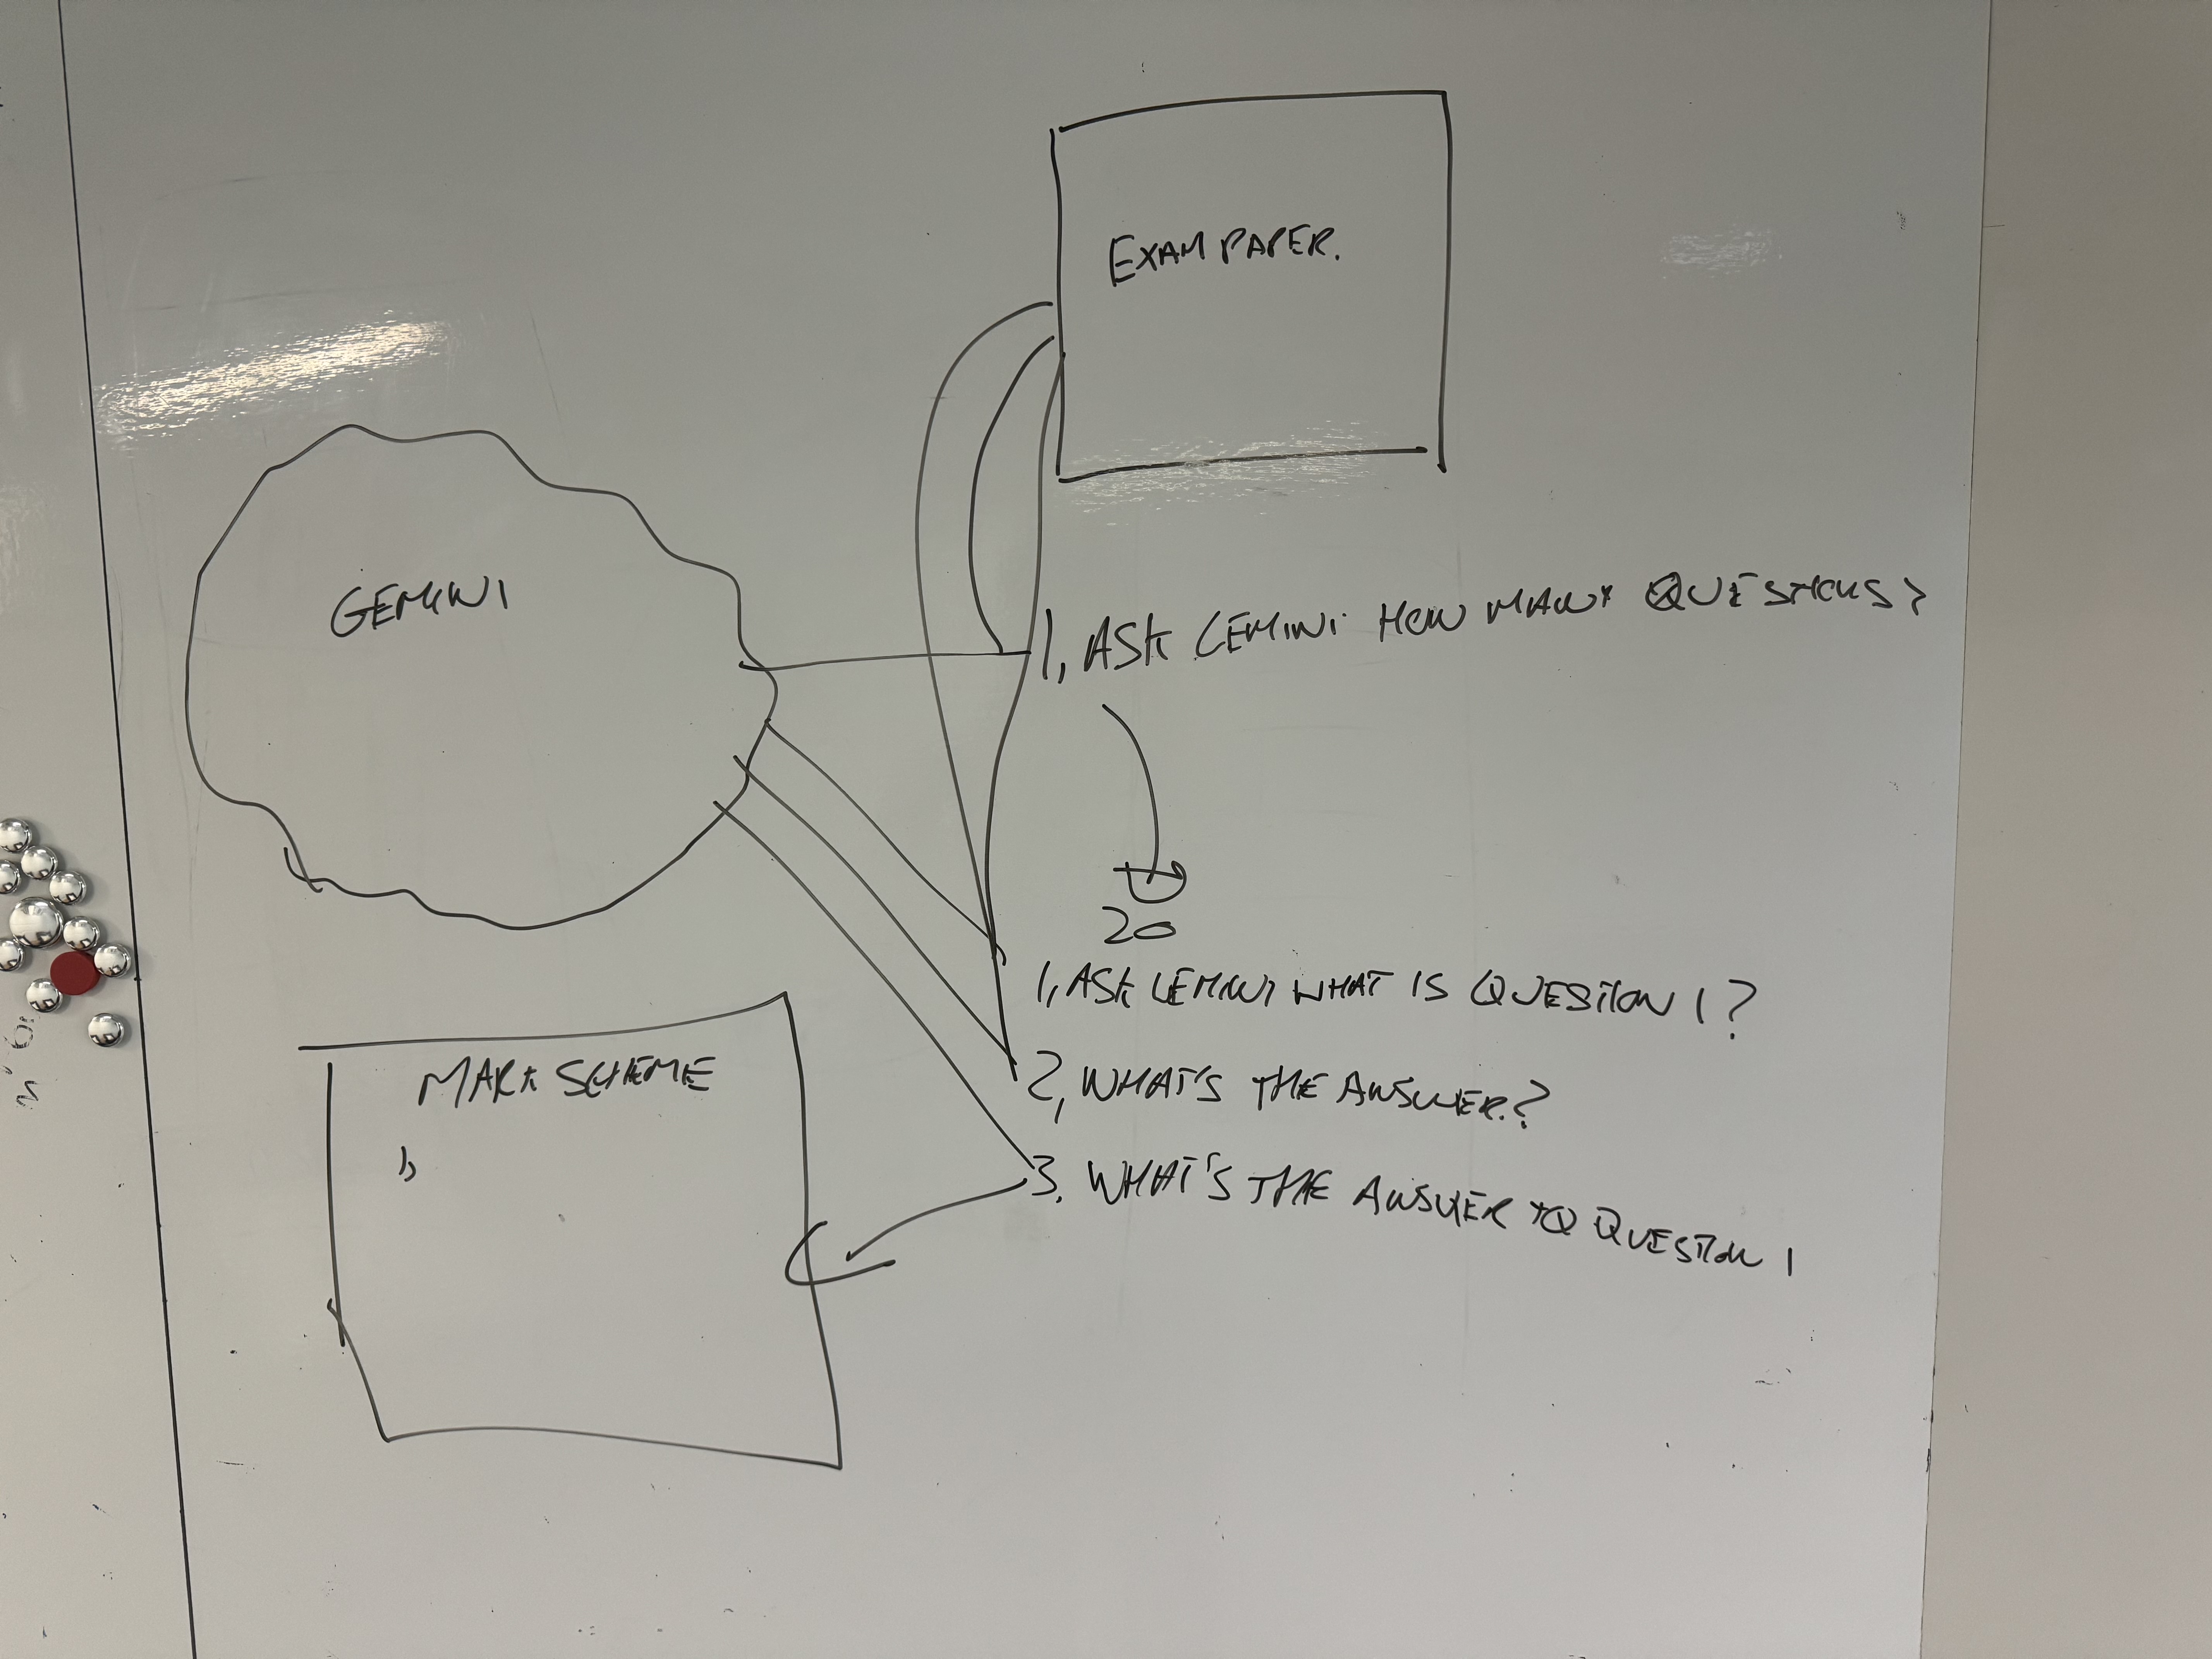 EXAM PAPER.
GEMINI
1, ASK GEMINI HOW MANY QUESTIONS?
20
1, ASK GEMINI WHAT IS QUESTION 1?
2, WHAT'S THE ANSWER.?
3, WHAT'S THE ANSWER TO QUESTION 1
MARK SCHEME
1,